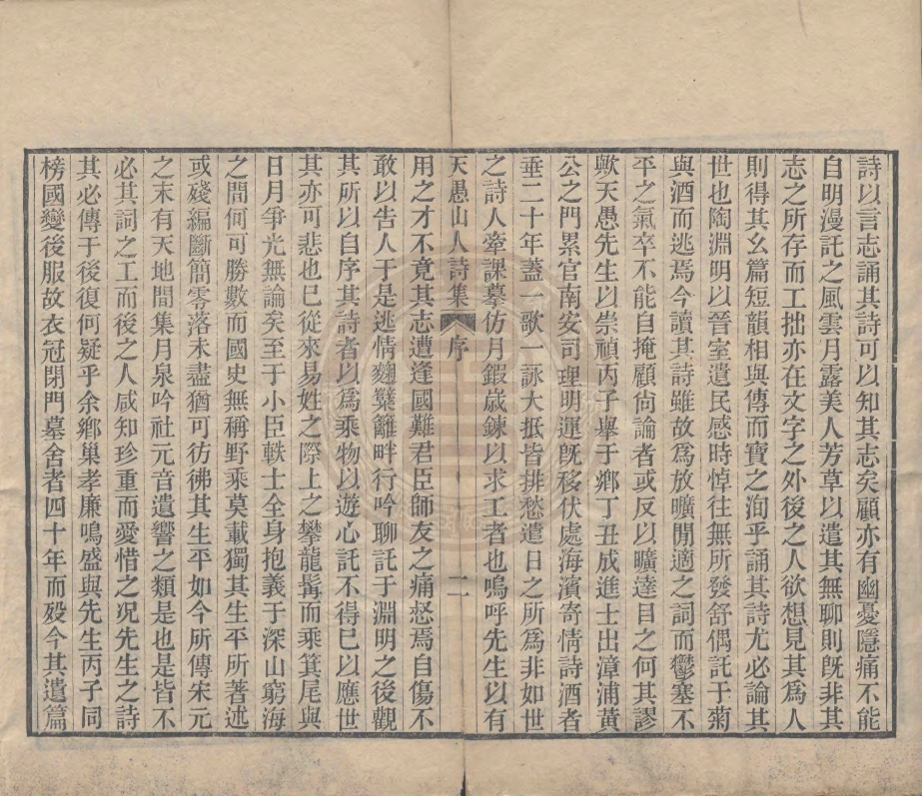 詩以言志誦其詩可以知其志矣顧亦有幽憂隱痛不能
自明漫託之風雲月露美人芳草以遣其無聊則旣非其
志之所存而工拙亦在文字之外後之人欲想見其為人
則得其幺篇短韻相與傳而寶之洵乎誦其詩尤必論其
世也陶淵明以晉室遺民感時悼往無所發舒偶託于菊
與酒而逃焉今讀其詩雖故為放曠閒適之詞而鬱塞不
平之氣卒不能自掩顧尙論者或反以曠達目之何其謬
歟天愚先生以崇禎丙子舉于鄉丁丑成進士出漳浦黃
公之門累官南安司理明運旣移伏處海濱寄情詩酒者
垂二十年蓋一歌一詠大抵皆排愁遣日之所為非如世
之詩人牽課摹仿月鍜歲鍊以求工者也嗚呼先生以有
天愚山人詩集 序 二
用之才不竟其志遭逢國難君臣師友之痛惄焉自傷不
敢以告人于是逃情麴糱籬畔行吟聊託于淵明之後觀
其所以自序其詩者以為乘物以遊心託不得已以應世
其亦可悲也已從來易姓之際上之攀龍髯而乘箕尾與
日月爭光無論矣至于小臣軼士全身抱義于深山窮海
之間何可勝數而國史無稱野乘莫載獨其生平所著述
或殘編斷簡零落未盡猶可彷彿其生平如今所傳宋元
之末有天地間集月泉吟社元音遺響之類是也是皆不
必其詞之工而後之人咸知珍重而愛惜之况先生之詩
其必傳于後復何疑乎余鄉巢孝廉鳴盛與先生丙子同
榜國變後服故衣冠閉門墓舍者四十年而歿今其遺篇